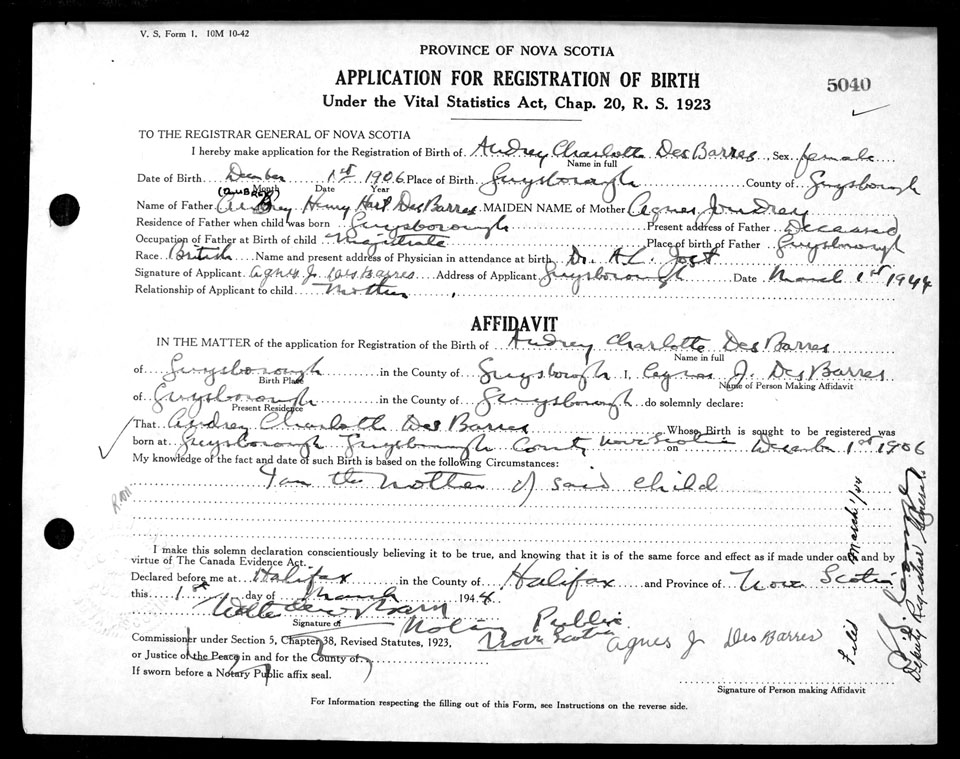 V. S. Form 1. 10M 10-42
PROVINCE OF NOVA SCOTIA
APPLICATION FOR REGISTRATION OF BIRTH
5040
Under the Vital Statistics Act, Chap. 20, R. S. 1923
TO THE REGISTRAR GENERAL OF NOVA SCOTIA
I hereby make application for the Registration of Birth of Audrey Charlotte Des Barres, Sex female
Name in full
Date of Birth December 1st 1906 Place of Birth Guysborough County of Guysborough
Month Date Year
(AUBREY)
Name of Father Aubrey Henry Hart Des Barres MAIDEN NAME of Mother Agnes Jondrey
Residence of Father when child was born Guysborough Present address of Father Deceased
Occupation of Father at Birth of child Magistrate Place of birth of Father Guysborough
Race British Name and present address of Physician in attendance at birth Dr. A. C. Jost
Signature of Applicant Agnes J. DesBarres Address of Applicant Guysborough Date March 1st 1944
Relationship of Applicant to child Mother
AFFIDAVIT
IN THE MATTER of the application for Registration of the Birth of Audrey Charlotte Des Barres
Name in full
of Guysborough in the County of Guysborough I, Agnes J. DesBarres
Birth Place Name of Person Making Affidavit
of Guysborough in the County of Guysborough do solemnly declare:
Present Residence
That Audrey Charlotte Des Barres Whose Birth is sought to be registered was
born at Guysborough Guysborough County Nova Scotia on December 1st 1906
My knowledge of the fact and date of such Birth is based on the following Circumstances:
I am the Mother of said child
I make this solemn declaration conscientiously believing it to be true, and knowing that it is of the same force and effect as if made under oath and by
virtue of The Canada Evidence Act.
Declared before me at Halifax in the County of Halifax and Province of Nova Scotia
this 1st day of March 1944.
Signature of Notary Public
Commissioner under Section 5, Chapter 38, Revised Statutes, 1923, Nova Scotia Agnes J DesBarres
or Justice of the Peace in and for the County of
If sworn before a Notary Public affix seal.
Signature of Person making Affidavit
For Information respecting the filling out of this Form, see Instructions on the reverse side.
Filed March 1/44
Deputy Registrar General.